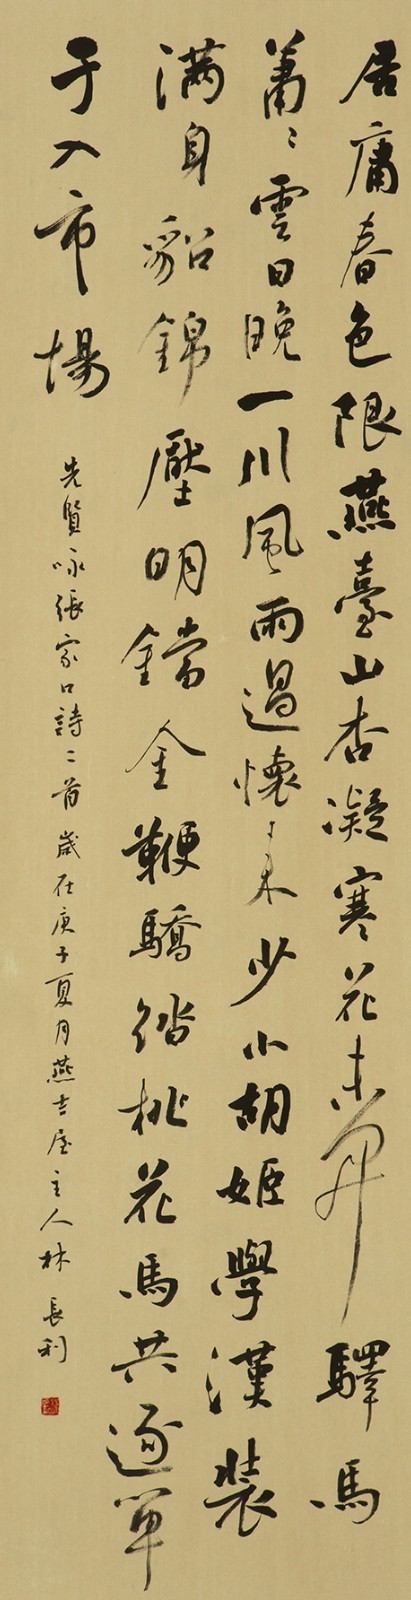 居庸春色限燕臺山杏凝寒花未開驛馬
蕭〻雲日晚一川風雨過懷來少小胡姬學漢裝
满身貂錦壓明鐺金鞭驕踏桃花馬共逐單
于入市場
先賢咏張家口詩二首歲在庚子夏月燕吉屋主人林長利